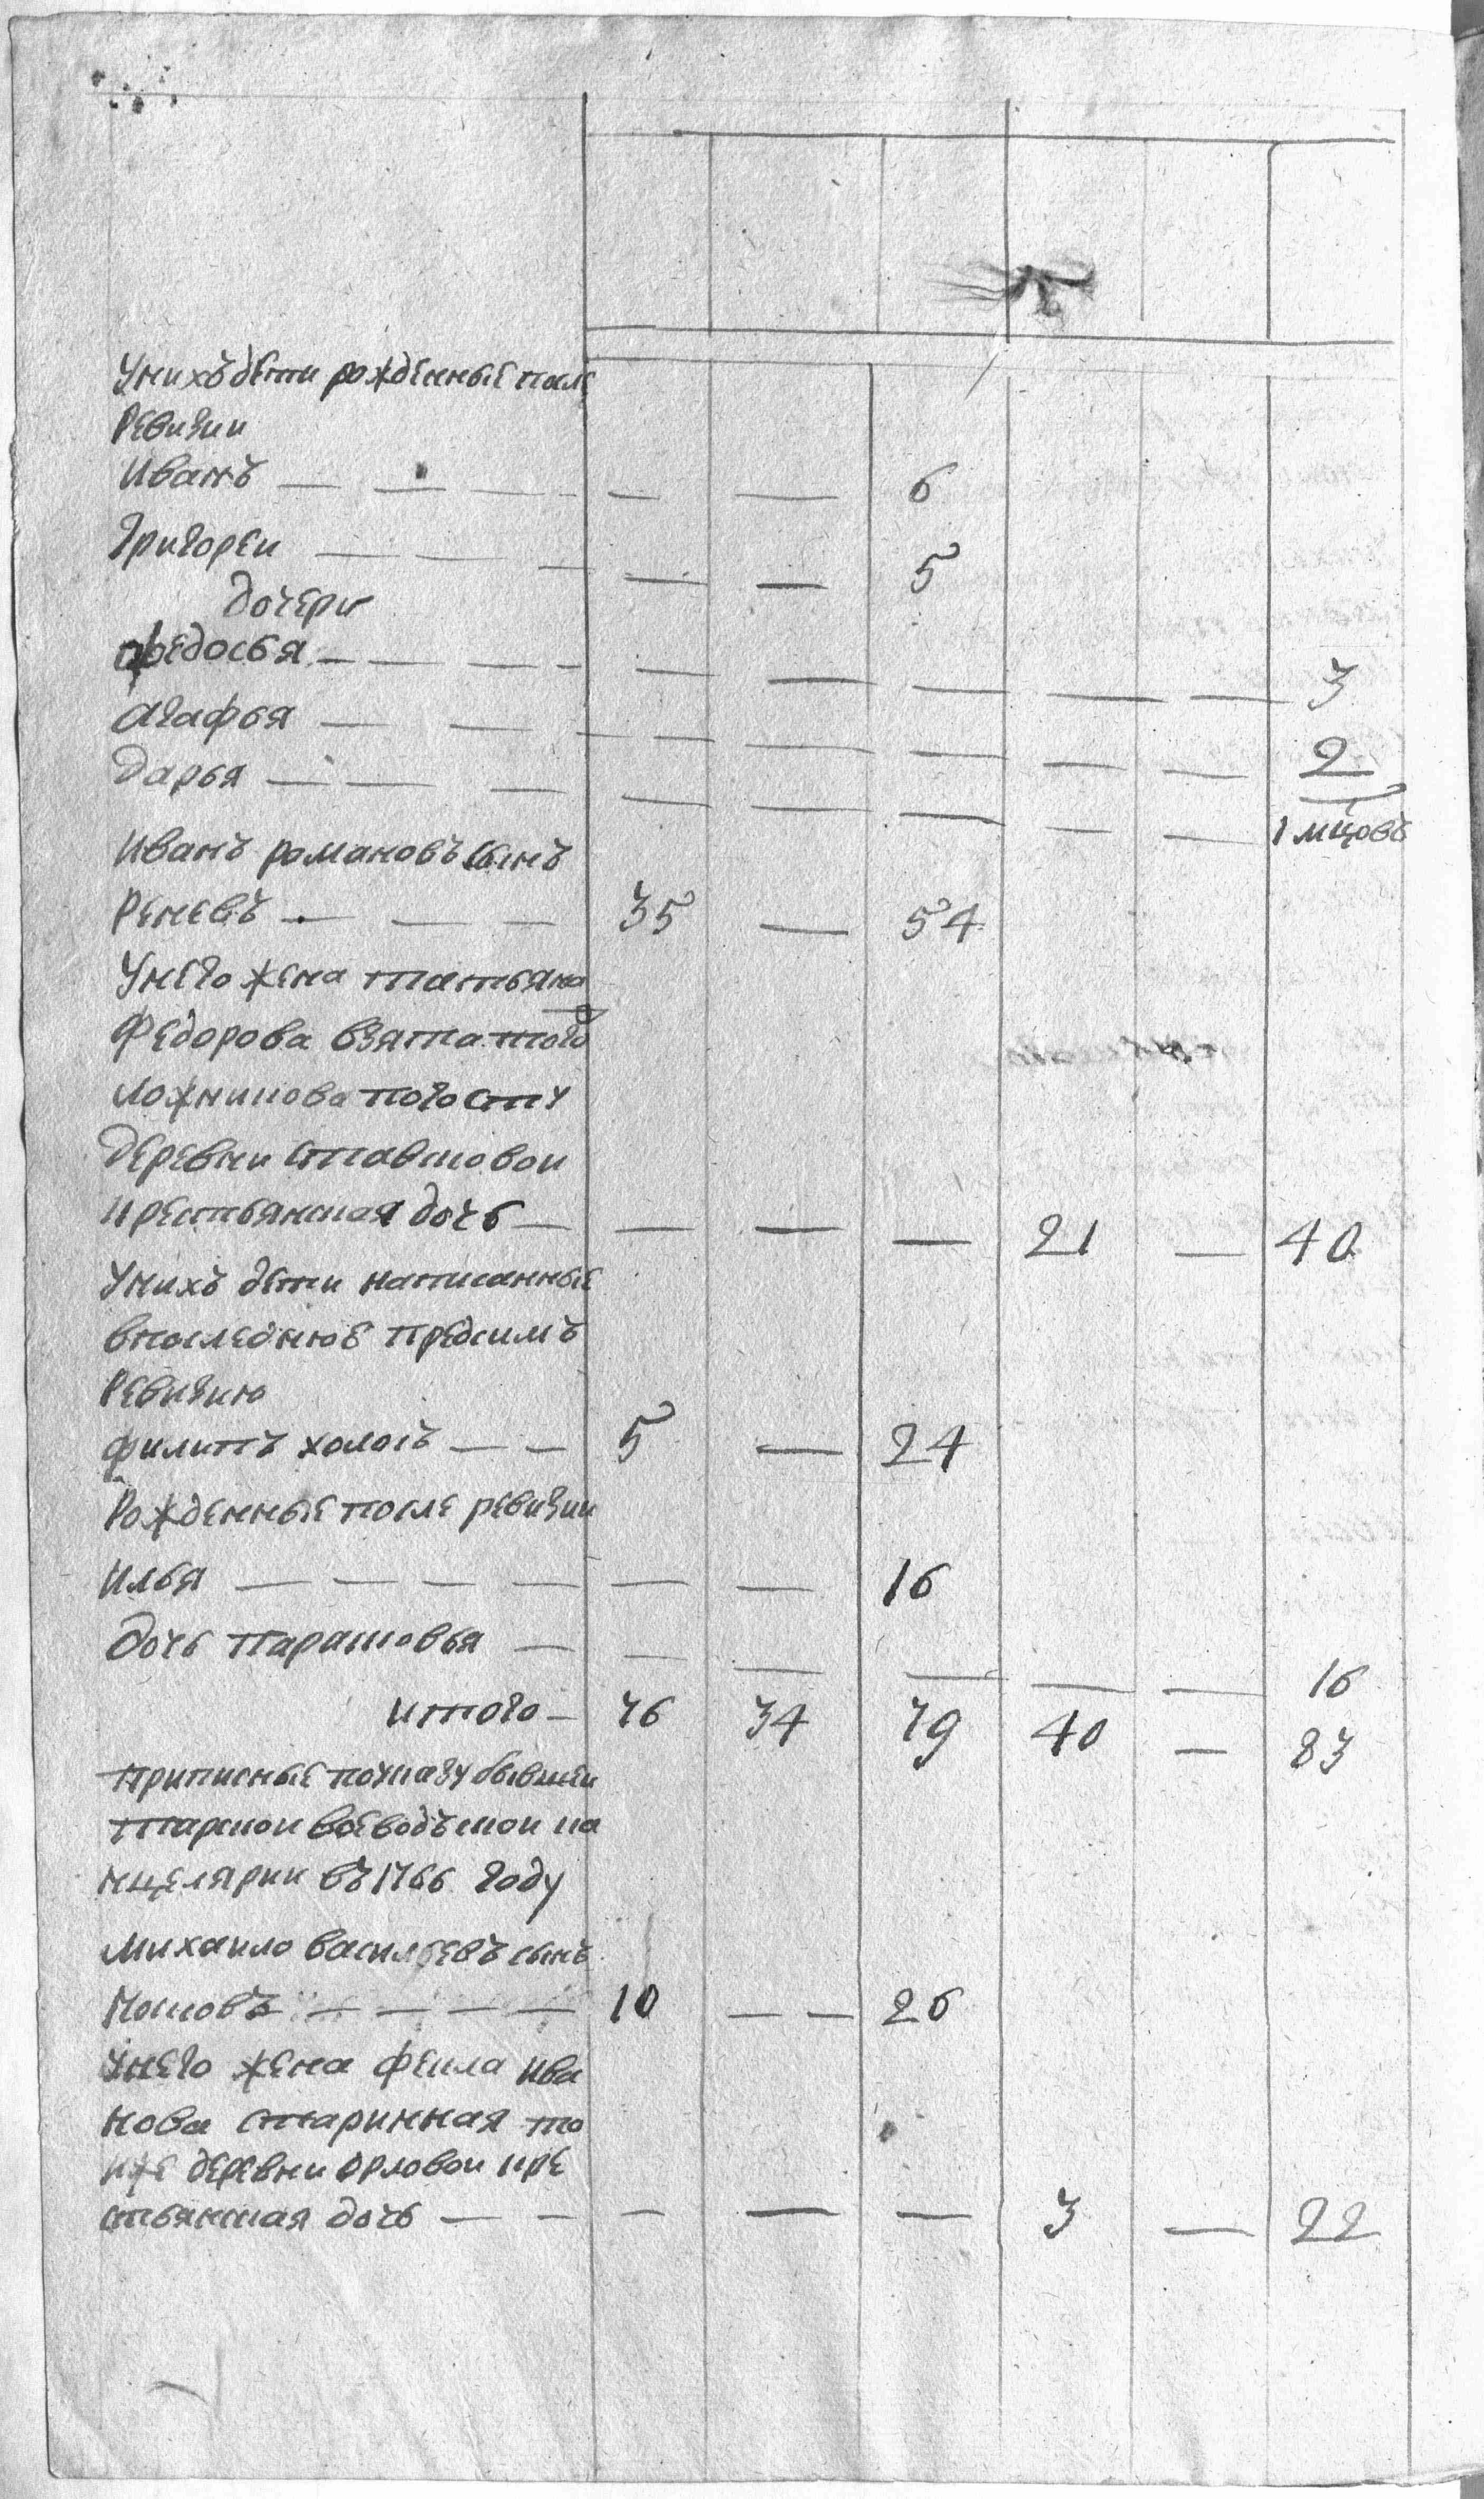 У нихъ дети рожденные после
ревизии
Иванъ — — — — — — 6
Григореи — — — — — 5
дочери
Федосья — — — — — — — — 3
Агафья — — — — — — — — 2
Дарья — — — — — — — — 1 мцовъ
Иванъ романовъ сынъ
Реневъ — — — 35 — 54
У него жена татьяна
Федорова взята того
Ложникова погосту
деревни ставсковои
крестьянская дочь — — — — 21 — 40
У нихъ дети написанные
в последнюю пред симъ
ревизию
Филипъ холостъ — — 5 — 24
Рожденные после ревизии
Илья — — — — — — 16
дочь Парасковья — — — — — — 16
итого — 76 34 79 40 — 83
Приписные по указу бывшеи
тарскои воеводъскои ка
нцелярии въ 1766 году
Михаило Васильевъ сынъ
— — — — 10 — — 26
У него жена Фекла Ива
нова старинная то
иже деревни Орловои кре
стьянская дочь — — — — — 3 — 22